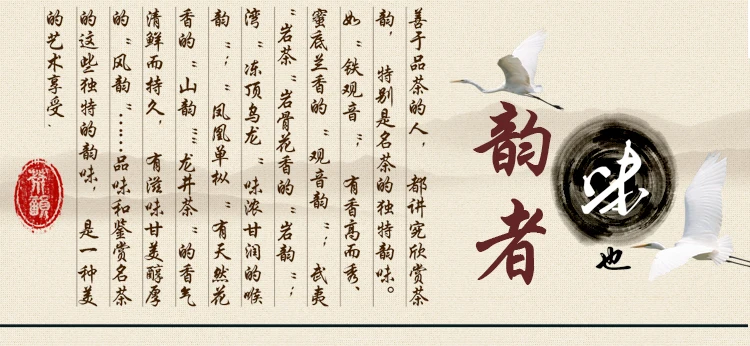 韵者
味
也
善于品茶的人，都讲究欣赏茶
韵，特别是名茶的独特韵味。
如“铁观音”，有香高而秀、
蜜底兰香的“观音韵”；武夷
“岩茶”岩骨花香的“岩韵”；
湾“冻顶乌龙”味浓甘润的喉
韵”；“凤凰单枞”有天然花
香的“山韵”“龙井茶”的香气
清鲜而持久，有滋味甘美醇厚
的“风韵”……品味和鉴赏名茶
的这些独特的韵味，是一种美
的艺术享受、
茶韻